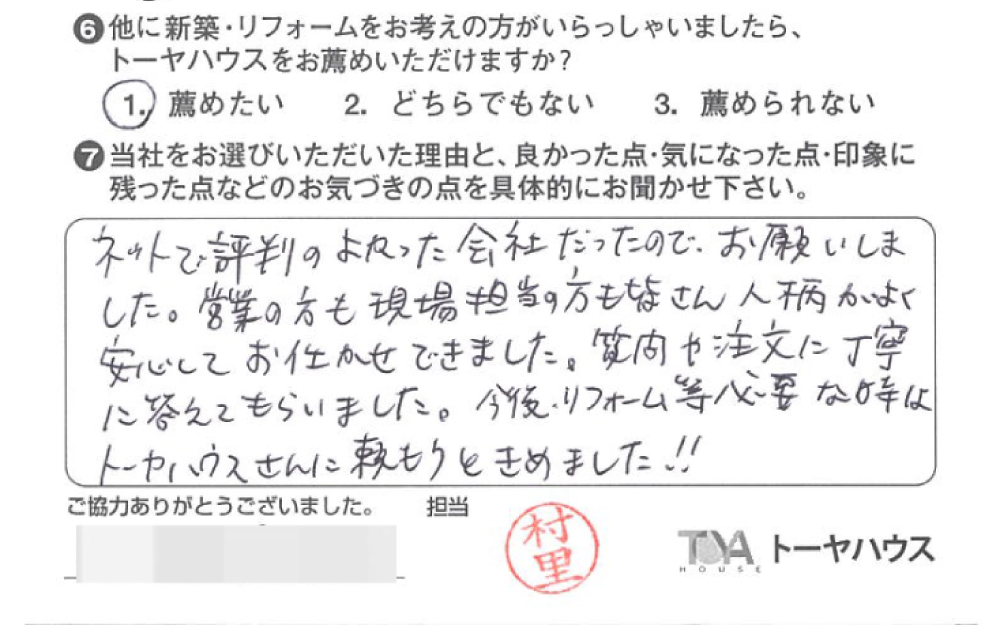 ❻他に新築・リフォームをお考えの方がいらっしゃいましたら、
トーヤハウスをお薦めいただけますか?
1. 薦めたい 2. どちらでもない 3. 薦められない
❼当社をお選びいただいた理由と、良かった点・気になった点・印象に
残った点などのお気づきの点を具体的にお聞かせ下さい。
ネットで評判のよかった会社だったので、お願いしま
した。営業の方も現場担当の方も皆さん人柄がよく
安心してお任かせできました。質問や注文に丁寧
に答えてもらいました。今後、リフォーム等必要な時は
トーヤハウスさんに頼もうときめました!!
ご協力ありがとうございました。 担当
村里
TOYA HOUSE トーヤハウス